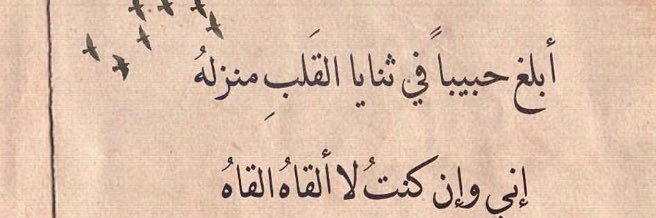 أبلغ حبيباً في ثنايا القَلبِ منزلهُ
إني وإن كنتُ لا ألقاهُ القاهُ